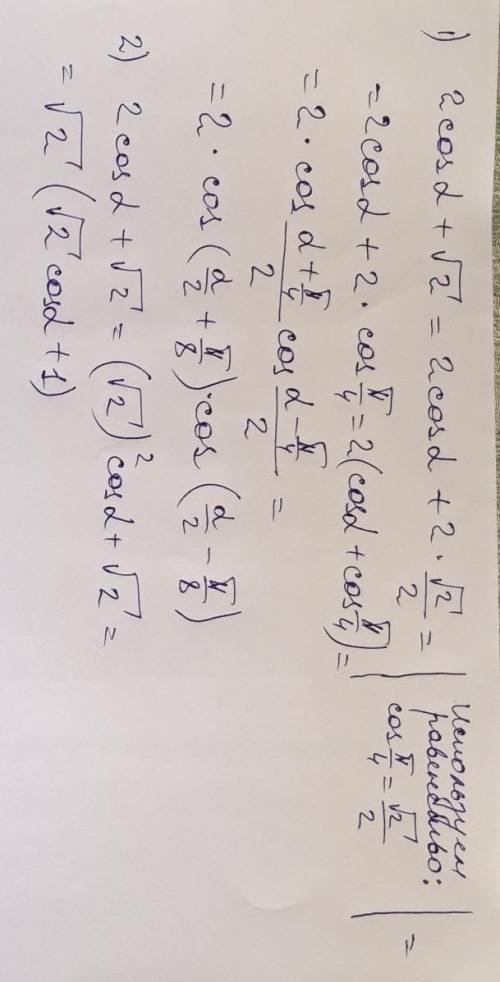 1) 2cosα + √2 = 2cosα + 2 · √2/2 = | Используем равенство: cos π/4 = √2/2 | =
= 2cosα + 2 · cos π/4 = 2(cosα + cos π/4) =
= 2 · cos (α + π/4)/2 cos (α − π/4)/2 =
= 2 · cos (α/2 + π/8) · cos (α/2 − π/8)
2) 2cosα + √2 = (√2)² cosα + √2 =
= √2 (√2 cosα + 1)